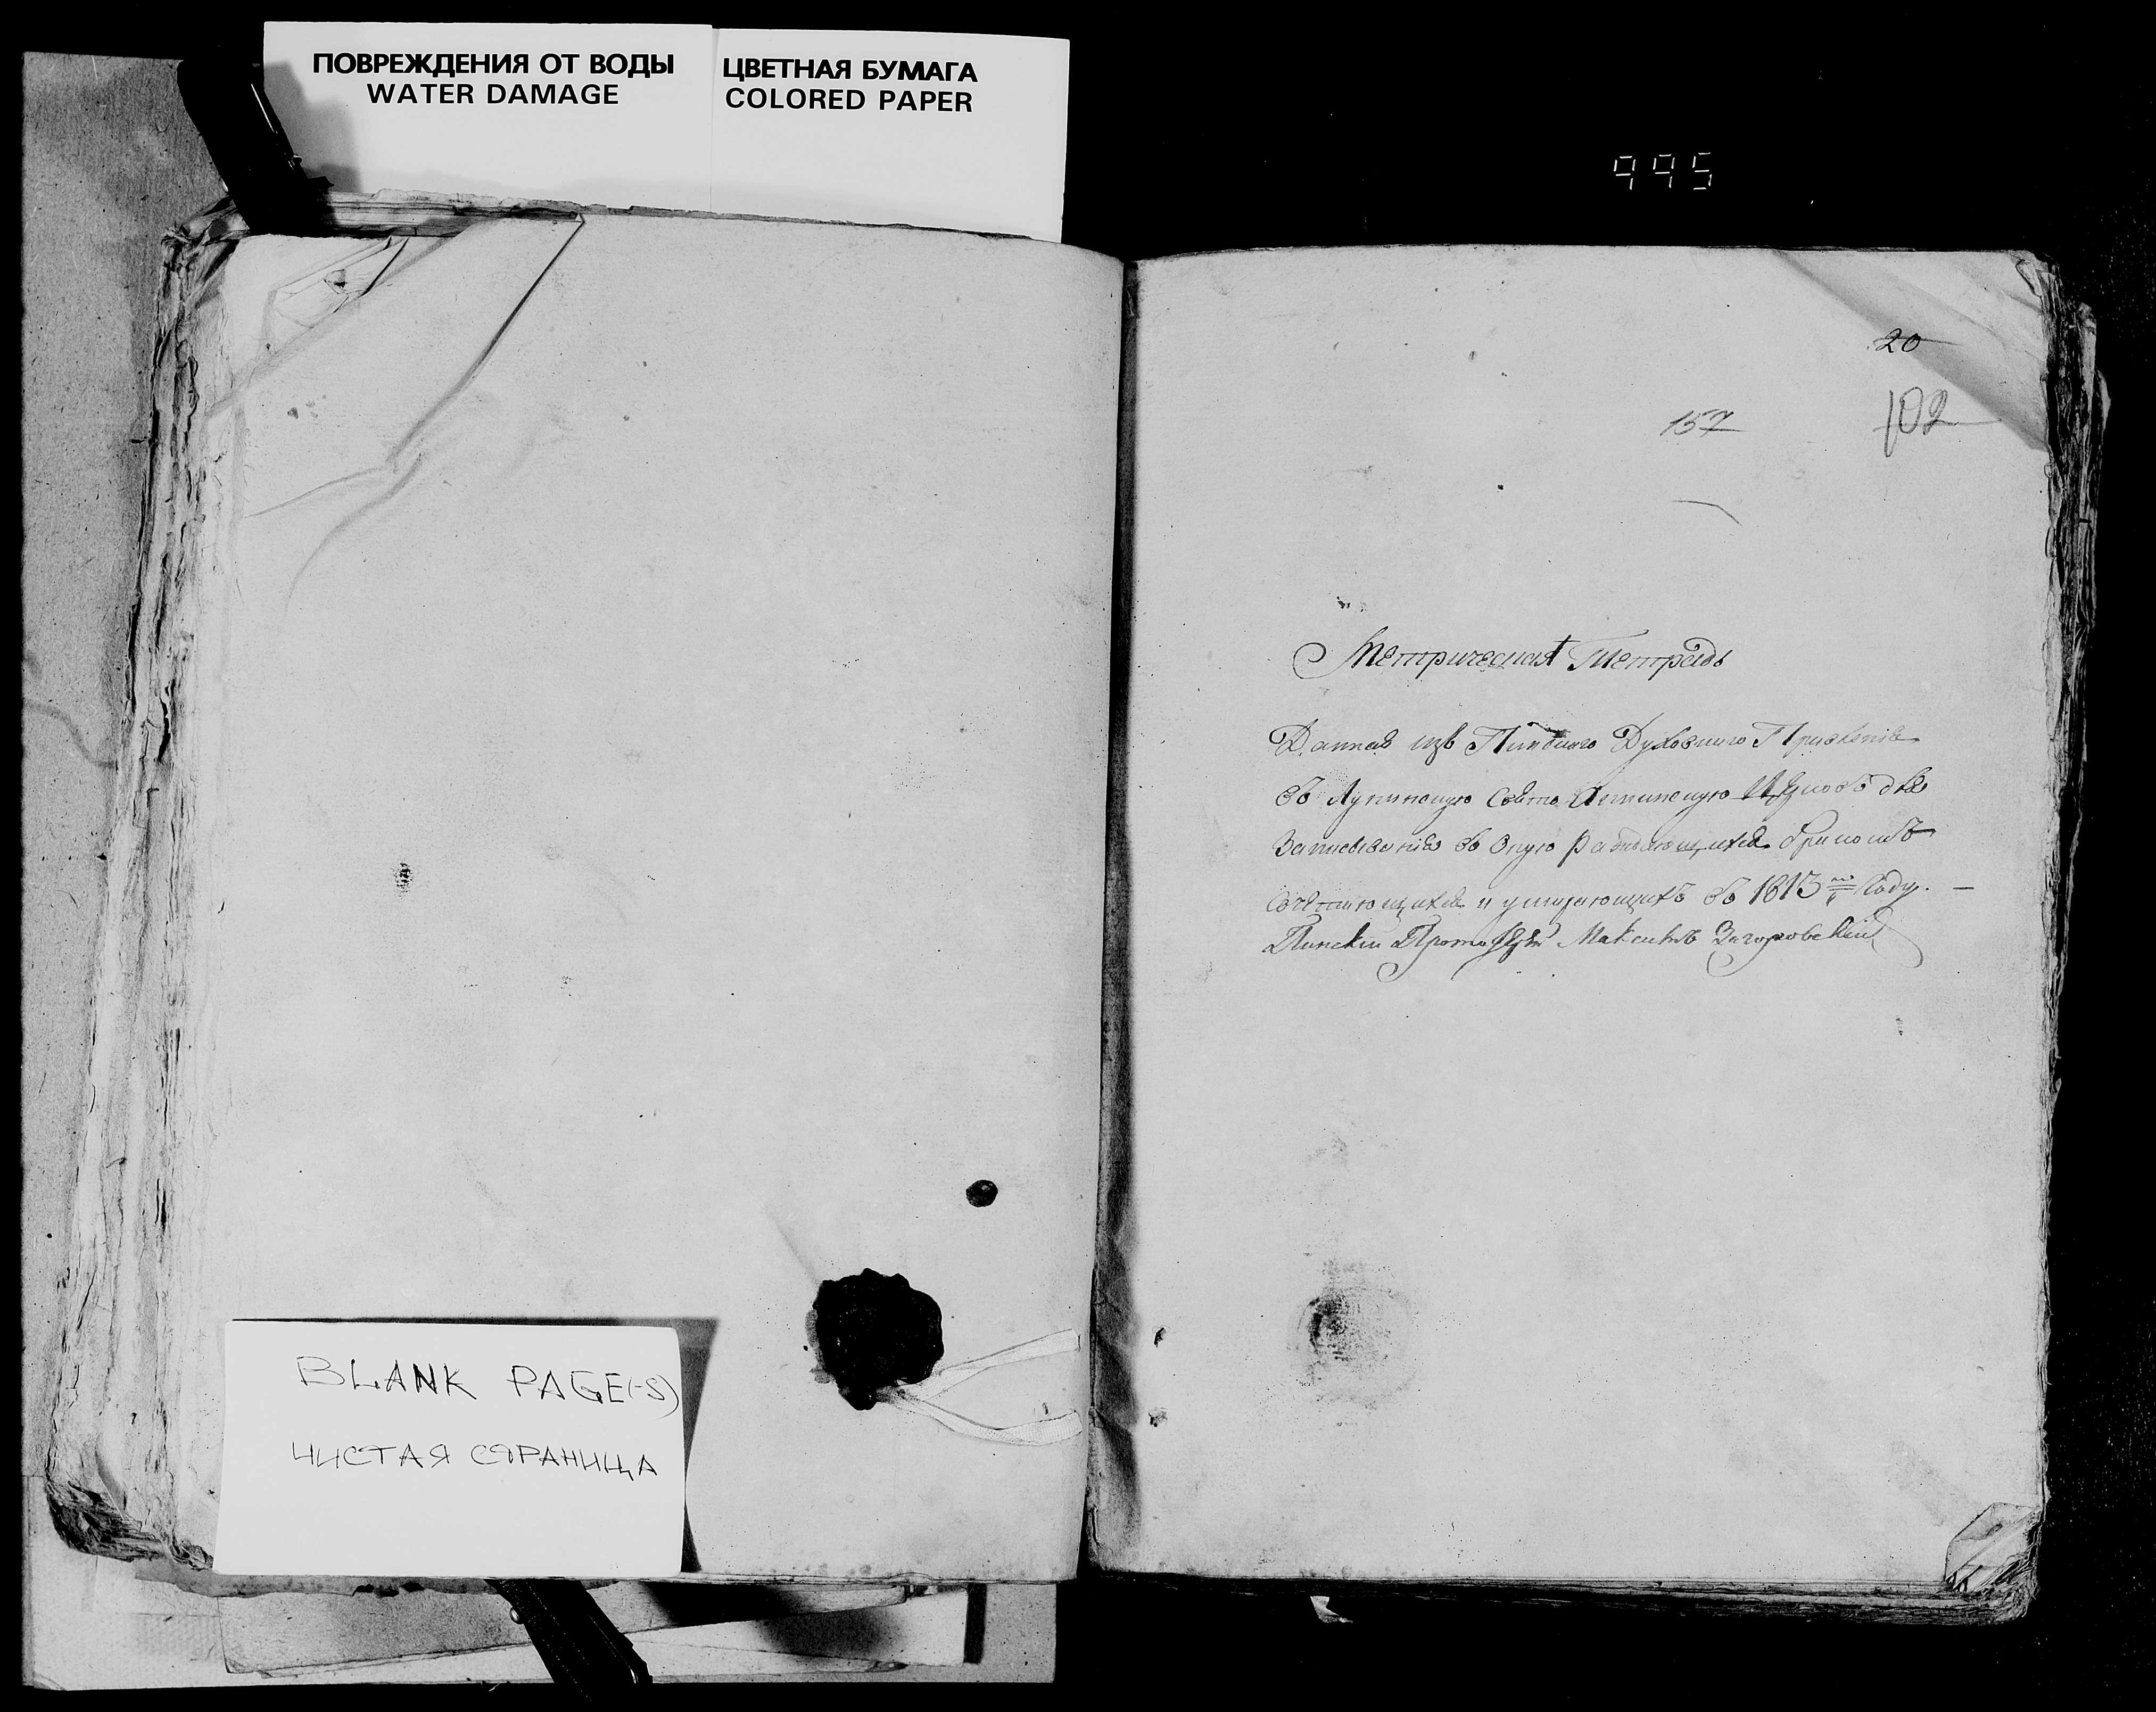 ПОВРЕЖДЕНИЯ ОТ ВОДЫ
WATER DAMAGE
ЦВЕТНАЯ БУМАГА
COLORED PAPER
995
20
157
102
Метрическая Тетрадь
Данная изъ Пинскаго Духовнаго Правленія
въ Лунинскую Свято Церковь для
Записыванія въ оную раждающихся бракомъ
сочетающихся и умирающихъ въ 1813 Году. —
Пинскій Протоіерей Максимъ Загоровскій
BLANK PAGE(-S)
ЧИСТАЯ СТРАНИЦА